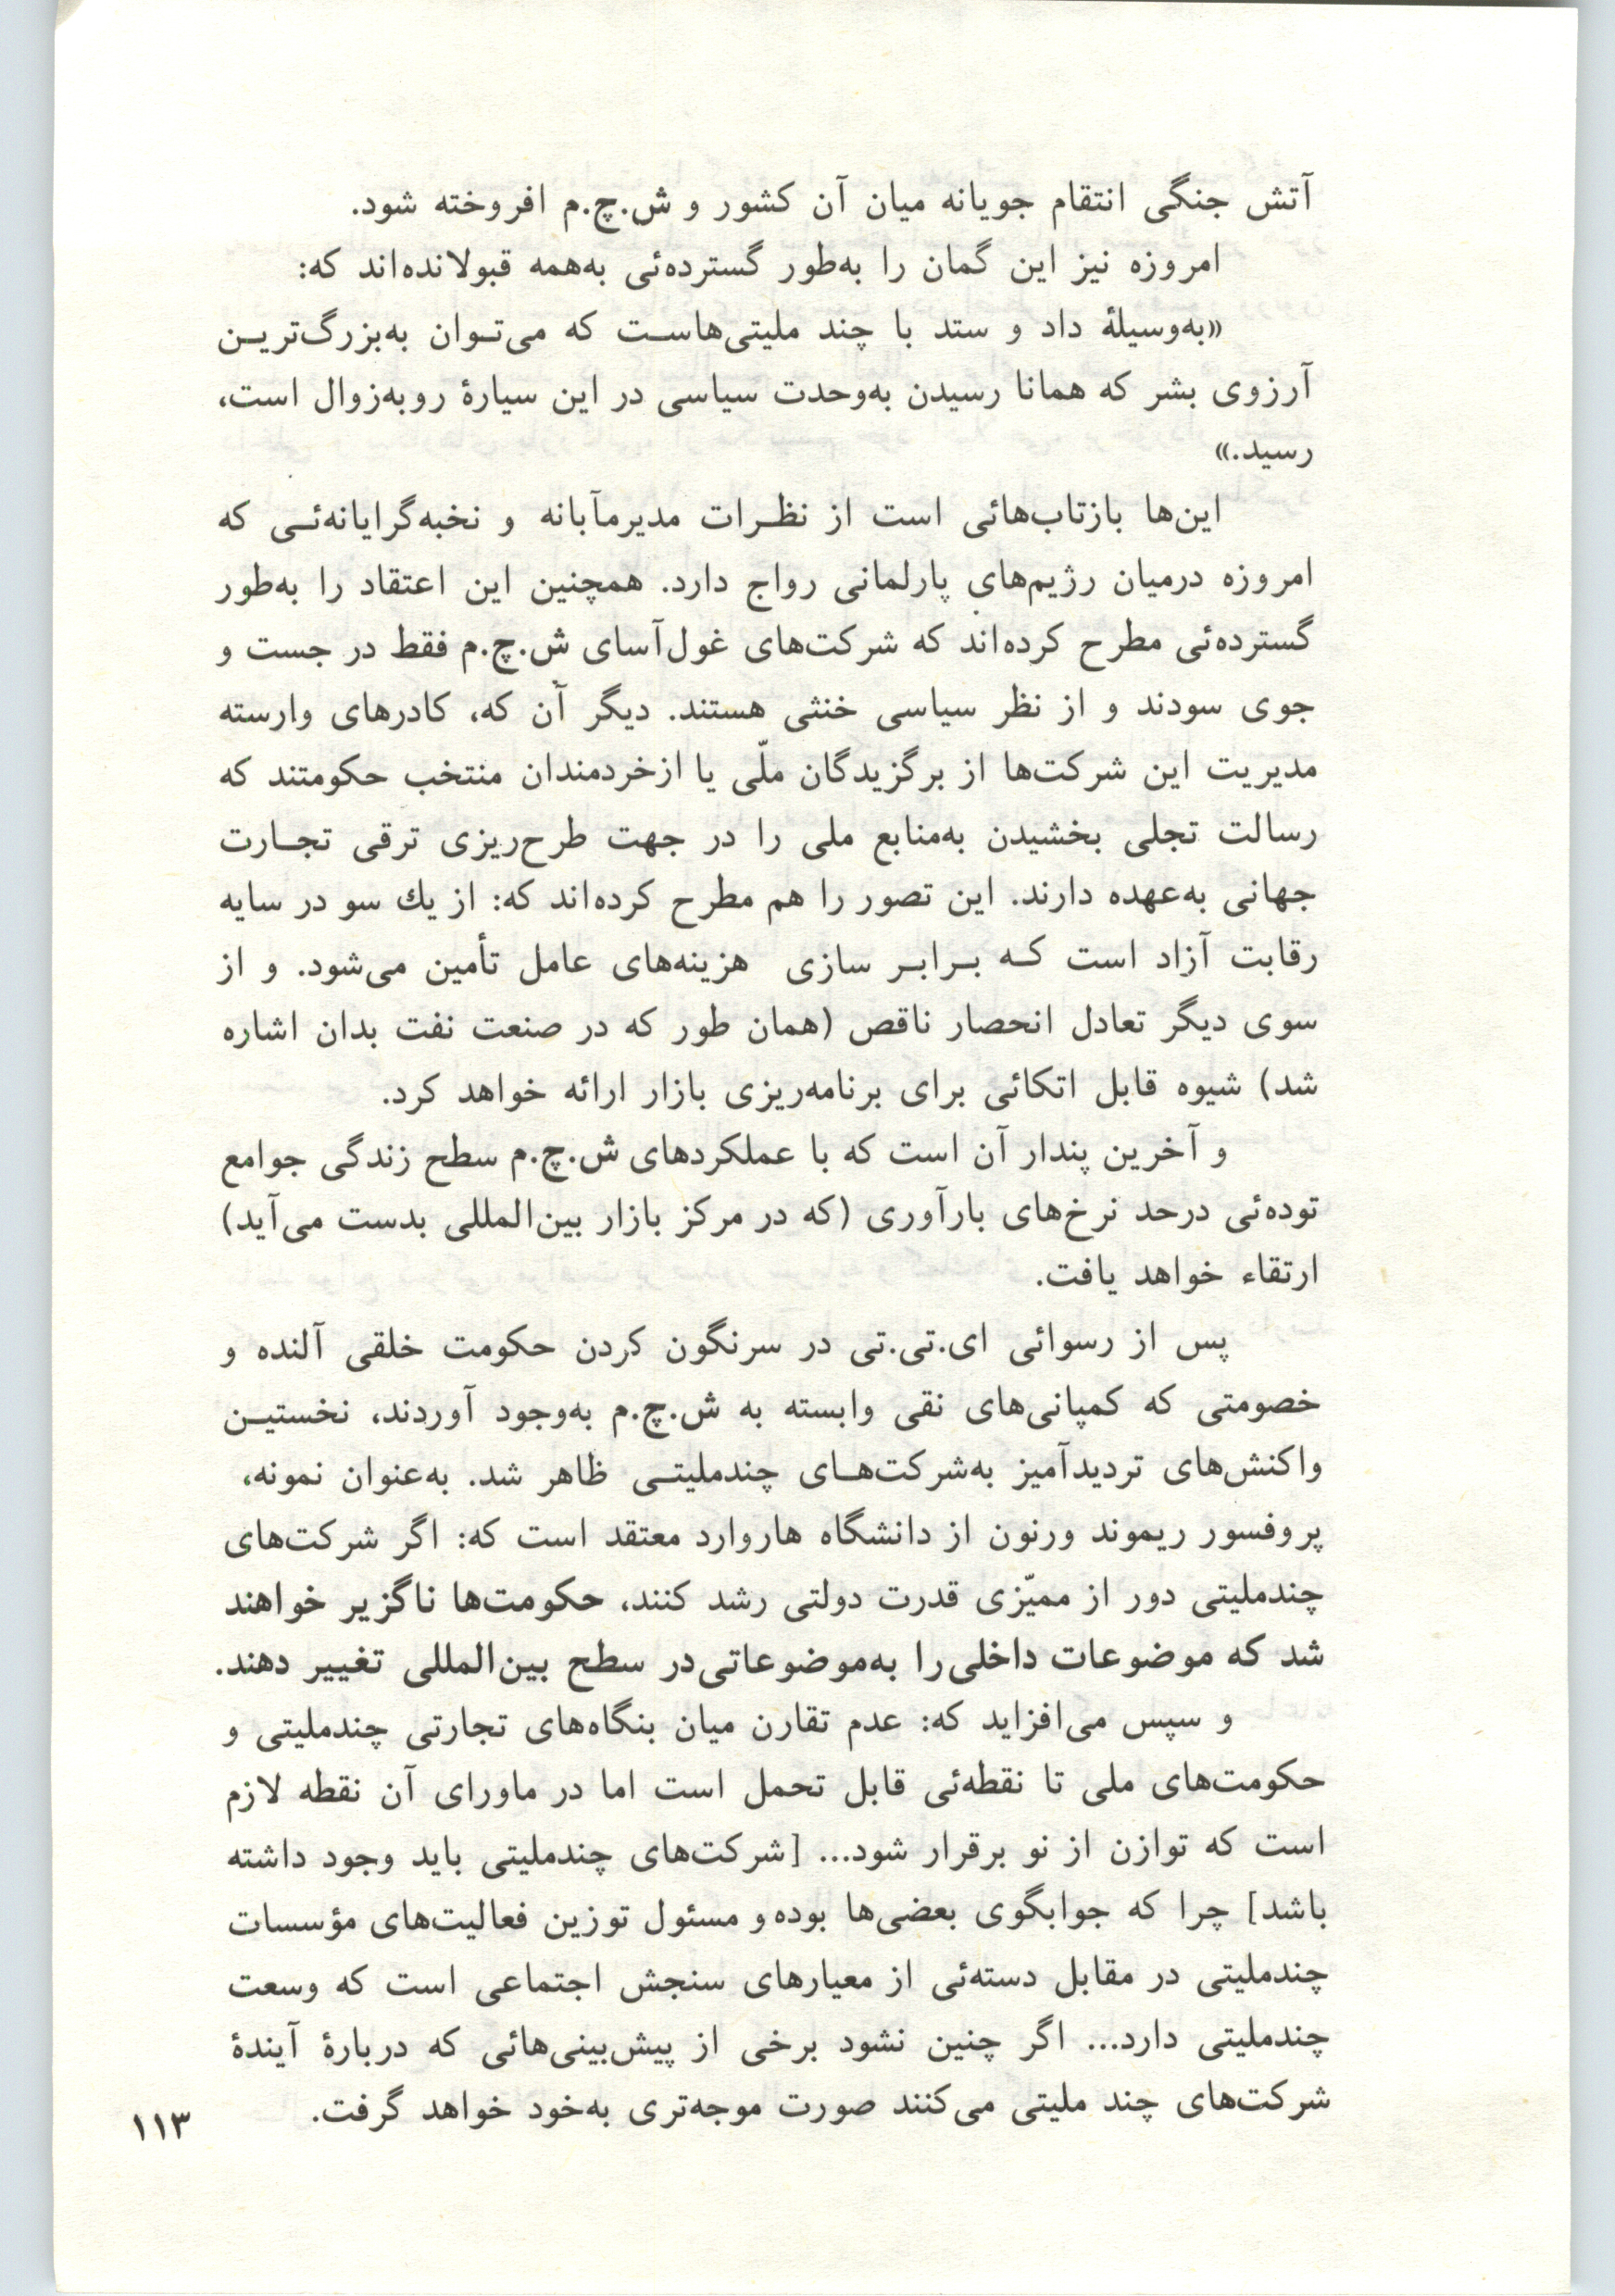 آتش جنگی انتقام جویانه میان آن کشور و ش.چ.م افروخته شود.
امروزه نیز این گمان را به‌طور گسترده‌ئی به‌همه قبولانده‌اند که:
«به‌وسیلهٔ داد و ستد با چند ملیتی‌هاست که می‌توان به‌بزرگ‌ترین
آرزوی بشر که همانا رسیدن به‌وحدت سیاسی در این سیارهٔ روبه‌زوال است،
رسید.»
این‌ها بازتاب‌هائی است از نظرات مدیرمآبانه و نخبه‌گرایانه‌ئی که
امروزه درمیان رژیم‌های پارلمانی رواج دارد. همچنین این اعتقاد را به‌طور
گسترده‌ئی مطرح کرده‌اند که شرکت‌های غول‌آسای ش.چ.م فقط در جست و
جوی سودند و از نظر سیاسی خنثی هستند. دیگر آن که، کادرهای وارسته
مدیریت این شرکت‌ها از برگزیدگان ملّی یا ازخردمندان منتخب حکومتند که
رسالت تجلی بخشیدن به‌منابع ملی را در جهت طرح‌ریزی ترقی تجارت
جهانی به‌عهده دارند. این تصور را هم مطرح کرده‌اند که: از یك سو در سایه
رقابت آزاد است که برابر سازی هزینه‌های عامل تأمین می‌شود. و از
سوی دیگر تعادل انحصار ناقص (همان طور که در صنعت نفت بدان اشاره
شد) شیوه قابل اتکائی برای برنامه‌ریزی بازار ارائه خواهد کرد.
و آخرین پندار آن است که با عملکردهای ش.چ.م سطح زندگی جوامع
توده‌ئی درحد نرخ‌های بارآوری (که در مرکز بازار بین‌المللی بدست می‌آید)
ارتقاء خواهد یافت.
پس از رسوائی ای.تی.تی در سرنگون کردن حکومت خلقی آلنده و
خصومتی که کمپانی‌های نقی وابسته به ش.چ.م به‌وجود آوردند، نخستین
واکنش‌های تردیدآمیز به‌شرکت‌های چندملیتی ظاهر شد. به‌عنوان نمونه،
پروفسور ریموند ورنون از دانشگاه هاروارد معتقد است که: اگر شرکت‌های
چندملیتی دور از ممیّزی قدرت دولتی رشد کنند، حکومت‌ها ناگزیر خواهند
شد که موضوعات داخلی را به‌موضوعاتی در سطح بین‌المللی تغییر دهند.
و سپس می‌افزاید که: عدم تقارن میان بنگاه‌های تجارتی چندملیتی و
حکومت‌های ملی تا نقطه‌ئی قابل تحمل است اما در ماورای آن نقطه لازم
است که توازن از نو برقرار شود... [شرکت‌های چندملیتی باید وجود داشته
باشد] چرا که جوابگوی بعضی‌ها بوده و مسئول توزین فعالیت‌های مؤسسات
چندملیتی در مقابل دسته‌ئی از معیارهای سنجش اجتماعی است که وسعت
چندملیتی دارد... اگر چنین نشود برخی از پیش‌بینی‌هائی که دربارهٔ آیندهٔ
شرکت‌های چند ملیتی می‌کنند صورت موجه‌تری به‌خود خواهد گرفت.
۱۱۳